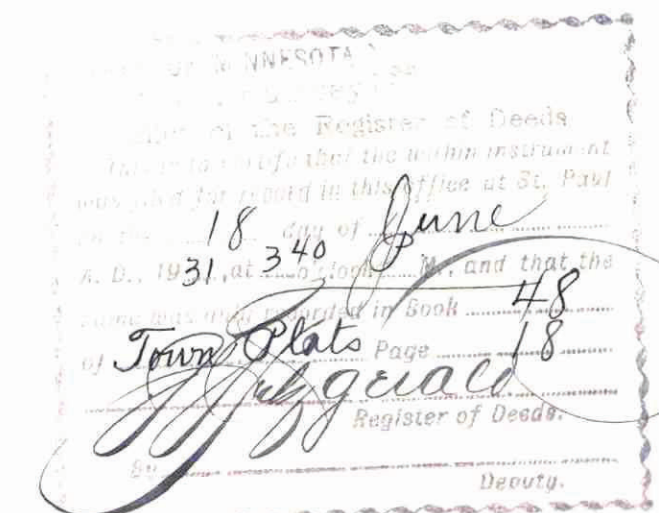 OF MINNESOTA
of the Register of Deeds
This is to certify that the within instrument
was filed for record in this office at St. Paul
on the 18 day of June
A. D., 1931, at 340 o'clock M., and that the
same was duly recorded in Book 48
of Town Plats Page 18
Fitzgerald
Register of Deeds.
By
Deputy.